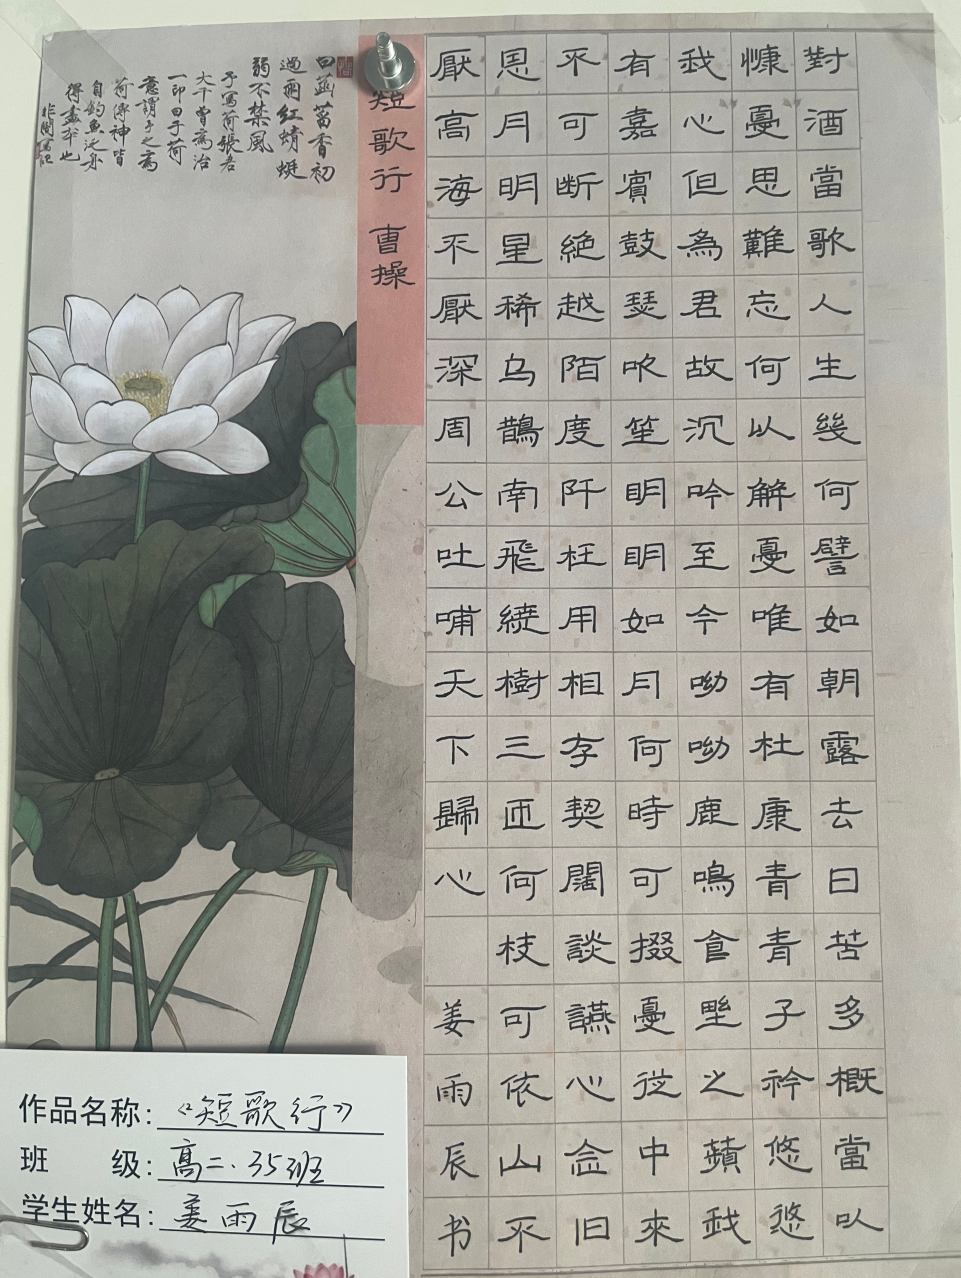 對酒當歌人生幾何譬如朝露去日苦多概當以
慷憂思難忘何以解憂唯有杜康青青子衿悠悠
我心但為君故沉吟至今呦呦鹿鳴食野之蘋我
有嘉賓鼓瑟吹笙明明如月何時可掇憂從中來
不可断絕越陌度阡枉用相存契闊談讌心念旧
恩月明星稀乌鵲南飛繞樹三匝何枝可依山不
厭高海不厭深周公吐哺天下歸心 姜雨辰书
短歌行 曹操
曰菡萏香初
過雨紅蜻蜓
弱不禁風
予写荷張君
大千曾為治
一印曰于荷
意謂予之為
荷傳神皆
自釣魚泛舟
得畫本也
作品名称:《短歌行》
班 级:高二.35班
学生姓名:姜雨辰